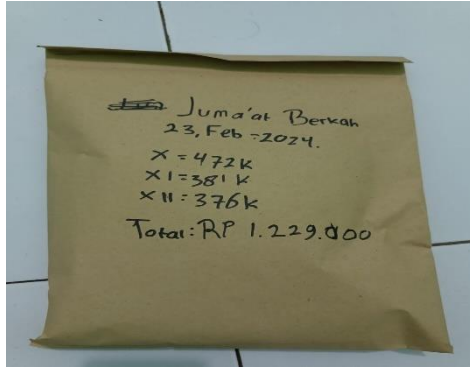 Juma'at Berkah
23, Feb -2024.
X = 472K
XI = 381 K
XII = 376K
Total: RP 1.229.000